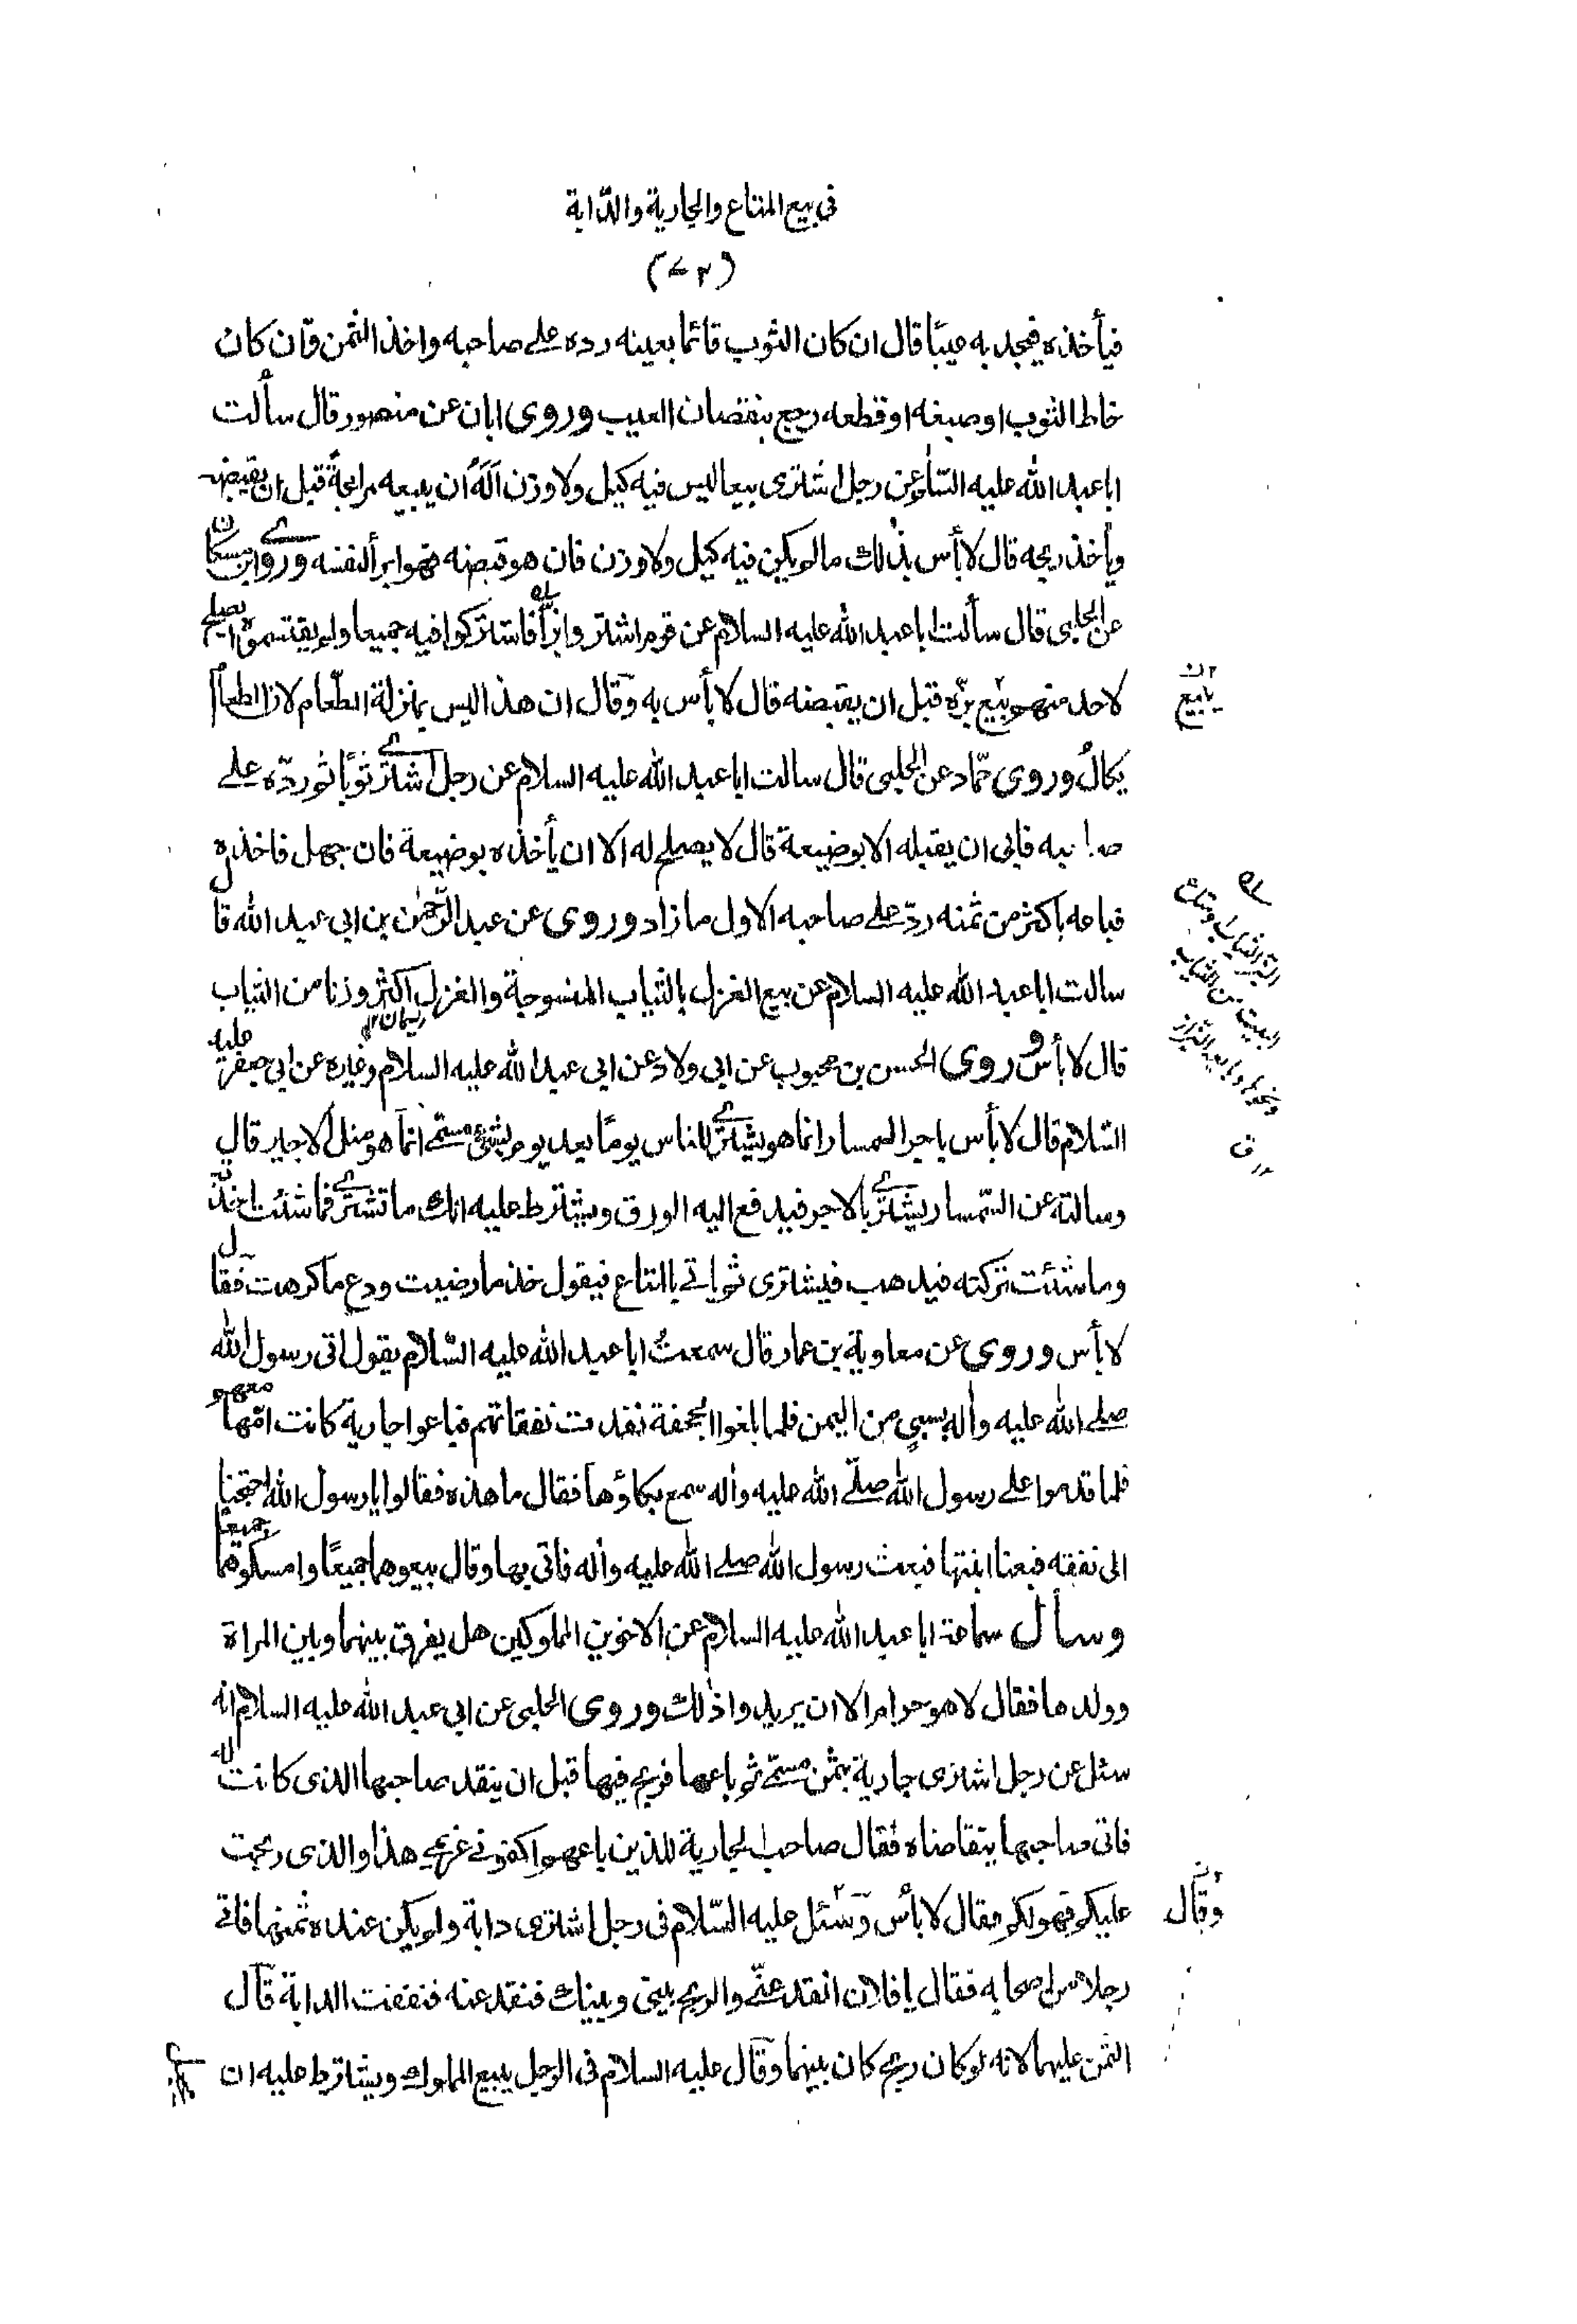 في بيع المتاع والجارية والدّابة
(٧٣)
فيأخذه فيجد به عيبًا قال ان كان الثوب قائما بعينه رده على صاحبه واخذ الثمن وان كان
خاط الثوب او صبغه او قطعه رجع بنقصان العيب وروى ابان عن منصور قال سألت
ابا عبد الله عليه السّلام عن رجل اشترى بيعا ليس فيه كيل ولا وزن اَلَهُ ان يبيعه مرابحةً قبل ان يقبضه
ويأخذ ربحه قال لا بأس بذلك ما لم يكن فيه كيل ولا وزن فان هو قبضه فهو ابرأ لنفسه وروى ابن مسكان
عن الحلبى قال سألت ابا عبد الله عليه السلام عن قوم اشتروا بزّا فاشتركوا فيه جميعا ولم يقتسموا ايصلح
لاحد منهم بيع بزّه قبل ان يقبضه قال لا بأس به وقال ان هذا ليس بمنزلة الطّعام لان الطعام
يكالُ وروى حمّاد عن الحلبى قال سالت ابا عبد الله عليه السلام عن رجل اشترى ثوبًا ثم ردّه على
صاحبه فابى ان يقبله الا بوضيعة قال لا يصلح له الا ان يأخذه بوضيعة فان جهل فاخذه
فباعه باكثر من ثمنه ردّ على صاحبه الاول ما زاد وروى عن عبد الرّحمٰن بن ابى عبد الله قال
سالت ابا عبد الله عليه السلام عن بيع الغزل بالثياب المنسوجة والغزل اكثر وزنا من الثياب
قال لا بأس وروى الحسن بن محبوب عن ابى ولاد عن ابى عبد الله عليه السلام وغيره عن ابى جعفر عليه
السّلام قال لا بأس باجر السمسار انما هو يشترى للناس يومًا بعد يوم بشئ مسمّى انما هو مثل الاجير قال
وسالته عن السّمسار يشترى بالاجر فيدفع اليه الورق ويشترط عليه انك ما تشترى فما شئت اخذته
وما شئت تركته فيذهب فيشترى ثم ياتى بالمتاع فيقول خذ ما رضيت ودع ما كرهت فقال
لا بأس وروى عن معاوية بن عمار قال سمعتُ ابا عبد الله عليه السّلام يقول اتى رسول الله
صلى الله عليه وآله بسبىٍ من اليمن فلما بلغوا الجحفة نفدت نفقاتهم فباعوا جارية كانت امّها معهم
فلما قدموا على رسول الله صلّى الله عليه وآله سمع بكاؤها فقال ما هذه فقالوا يا رسول الله احتجنا
الى نفقة فبعنا ابنتها فبعث رسول الله صلى الله عليه وآله فاتى بها وقال بيعوهما جميعًا وامسكوهما جميعًا
وسأل سماعة ابا عبد الله عليه السلام عن الاخوين المملوكين هل يفرق بينهما وبين المراة
وولدها فقال لا هو حرام الا ان يريدوا ذلك وروى الحلبى عن ابى عبد الله عليه السلام انه
سئل عن رجل اشترى جارية بثمن مسمّى ثم باعها فربح فيها قبل ان ينقد صاحبها الذى كانت له
فاتى صاحبها يتقاضاه فقال صاحب الجارية للذين باعهم اكفونى غريمى هذا والذى ربحت
عليكم فهو لكم فقال لا بأس وسئل عليه السّلام فى رجل اشترى دابة ولم يكن عنده ثمنها فاتى
رجلا من اصحابه فقال يا فلان انقد عنّى والربح بينى وبينك فنقد عنه فنفقت الدابة قال
الثمن عليهما لانه لو كان ربح كان بينهما وقال عليه السلام فى الرجل يبيع المملوك ويشترط عليه ان
يبيع
وقال